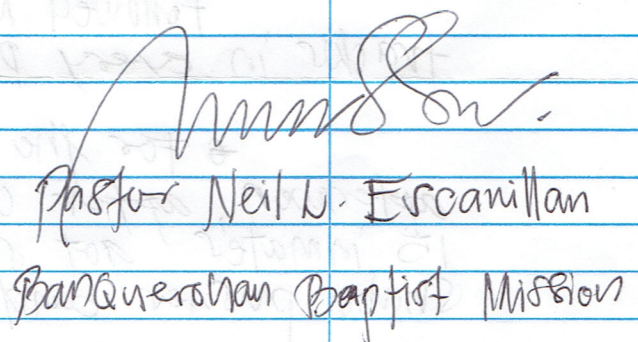 Pastor Neil N. Escanillan
Banquerohan Baptist Mission